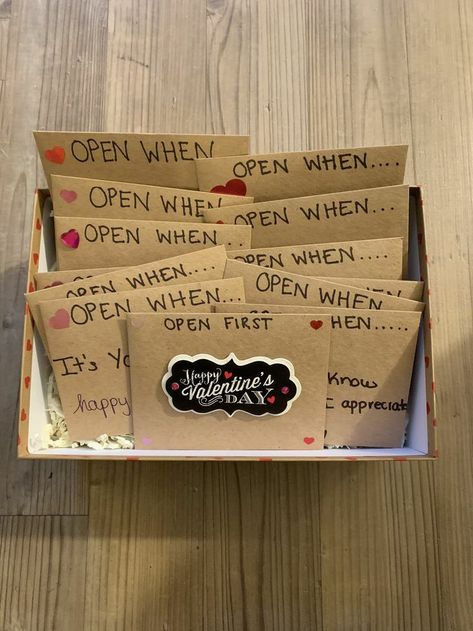 OPEN WHEN...
OPEN WHEN....
OPEN WHEN...
OPEN WHEN....
OPEN WHEN...
OPEN WHEN....
OPEN WHEN...
OPEN WHEN...
OPEN WHEN...
It's
happy
OPEN FIRST
Happy
Valentine's
DAY
HEN.....
Know
I appreciate